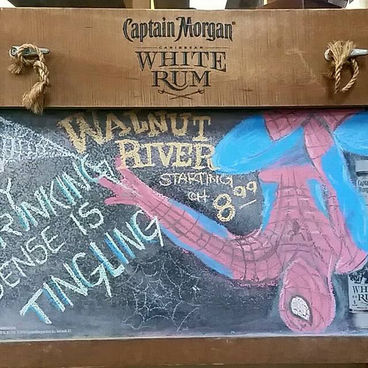 Captain Morgan
CARIBBEAN
WHITE
RUM
WALNUT
RIVER
STARTING
8.00
Y
DRINKING
SENSE IS
TINGLING